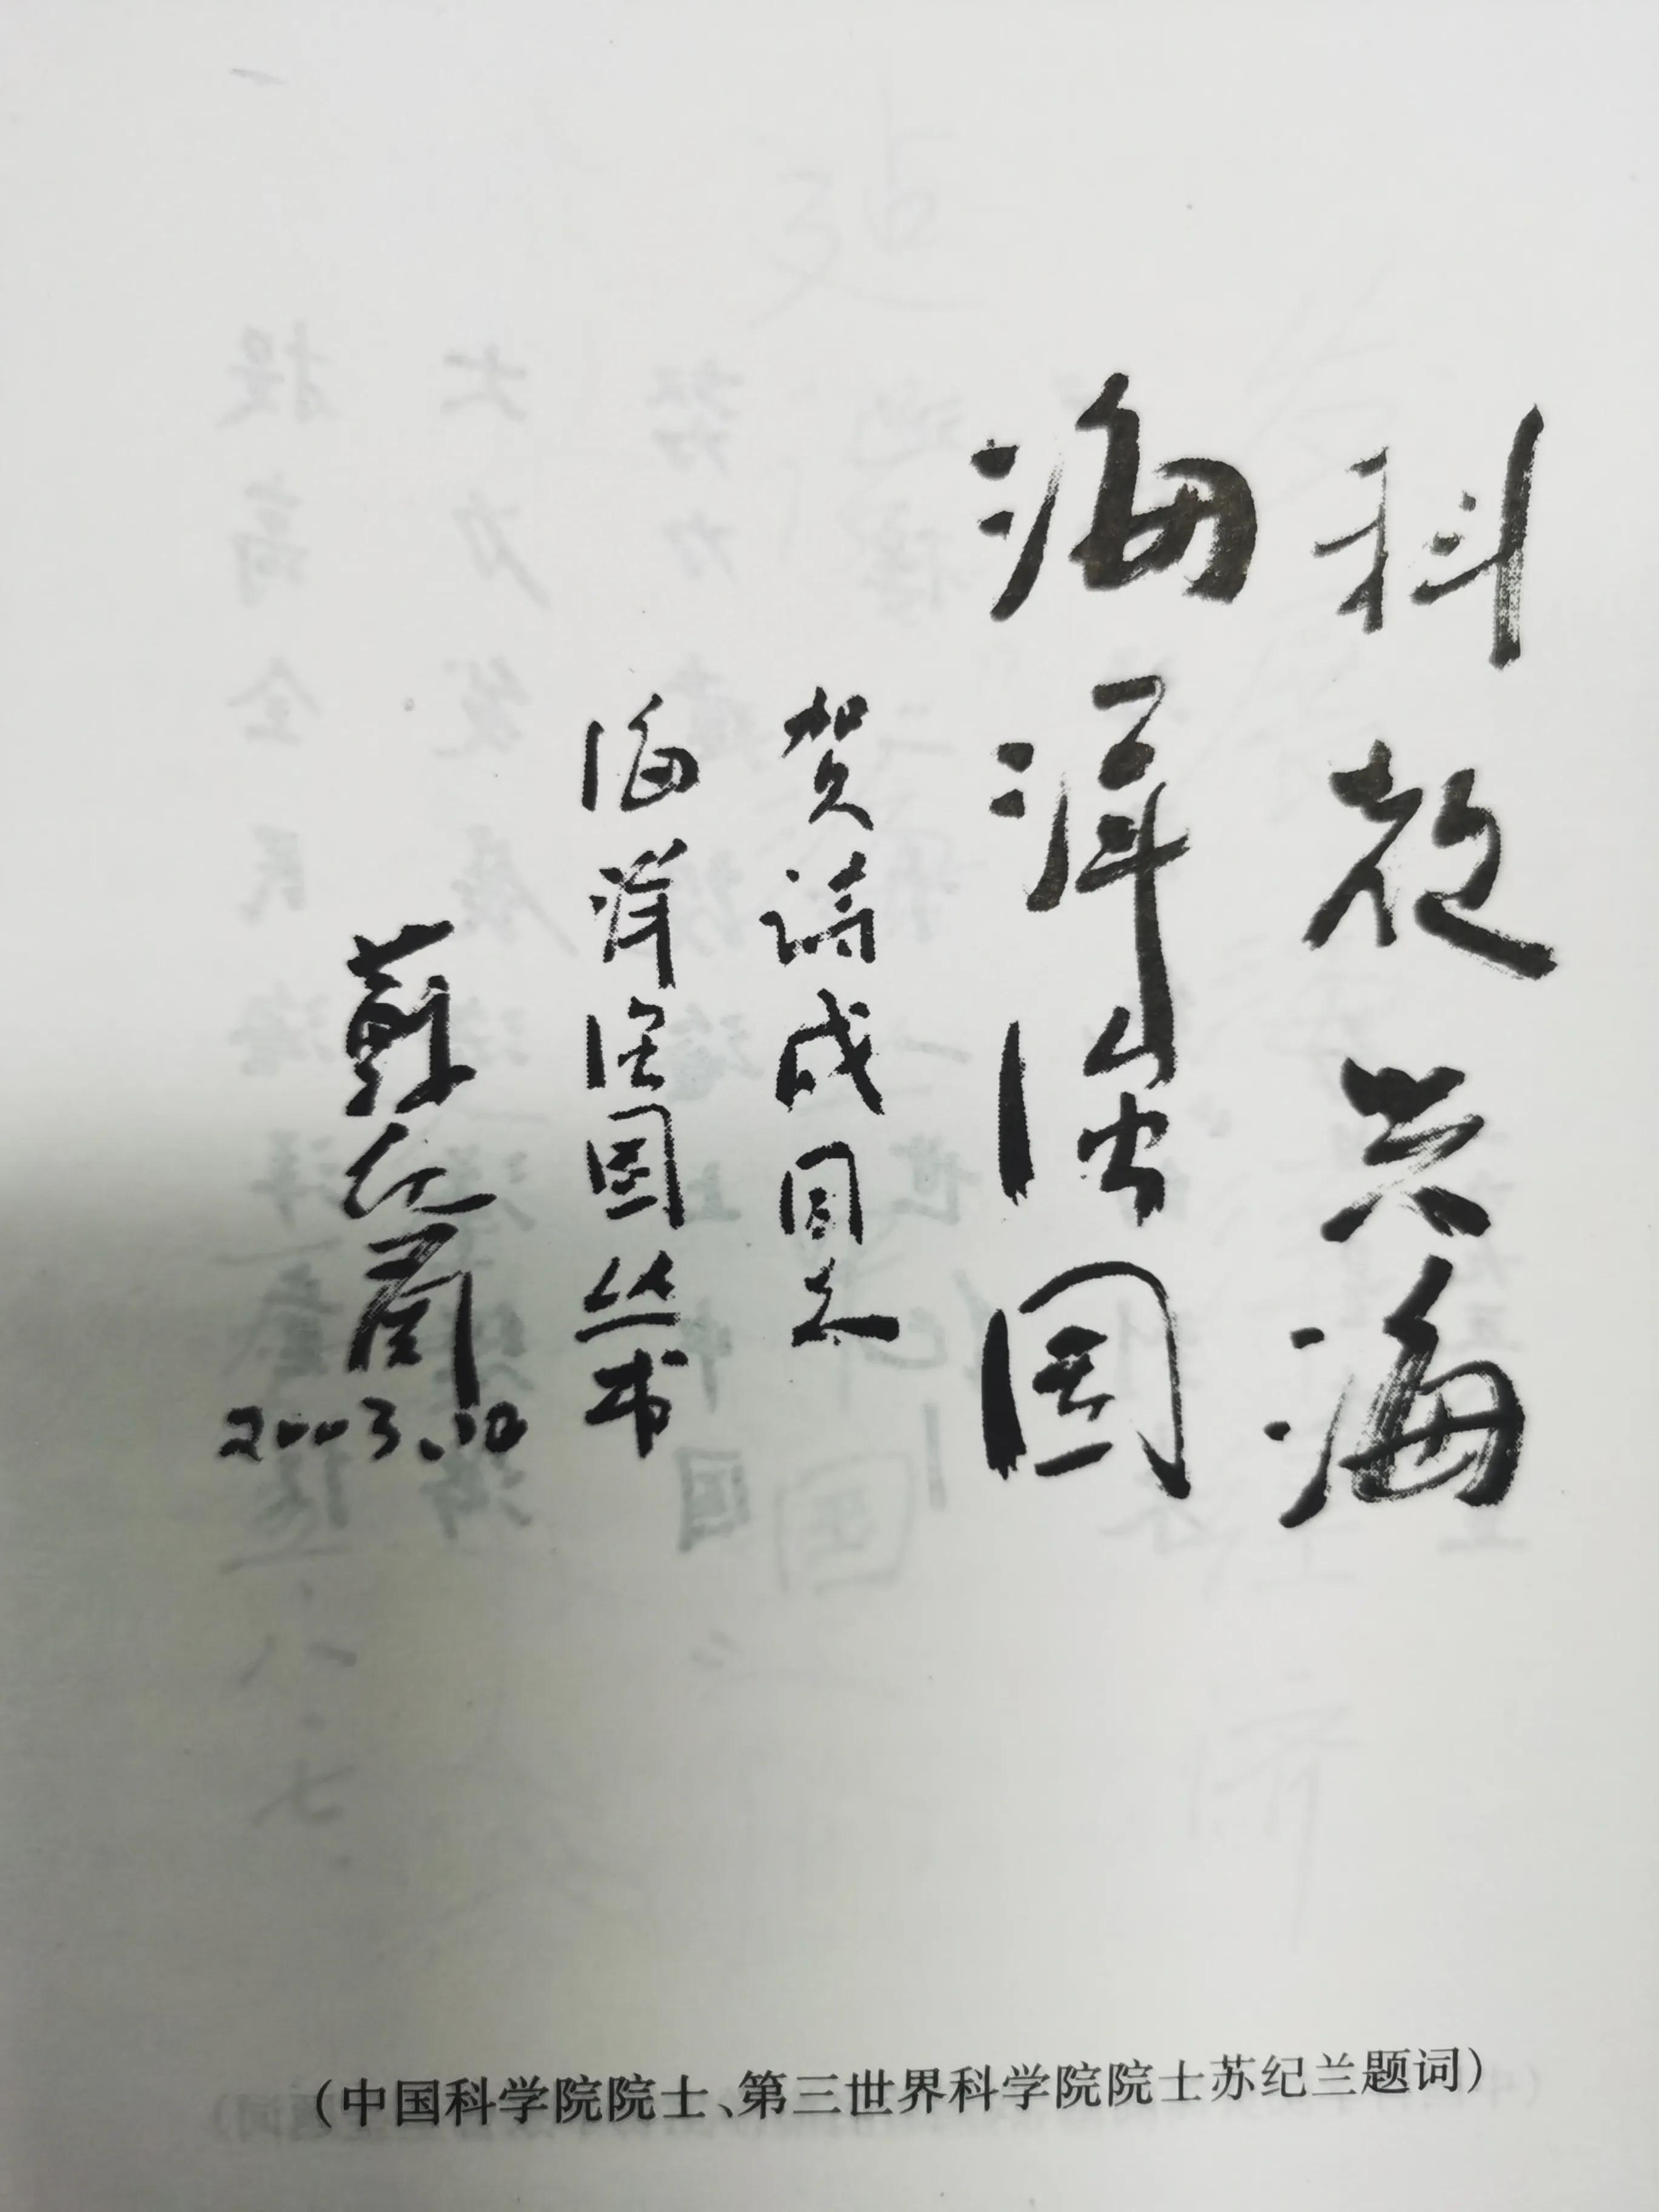 科教兴海
海洋强国
贺诗成同志
海洋强国丛书
蘇纪蘭
2003.10
(中国科学院院士、第三世界科学院院士苏纪兰题词)